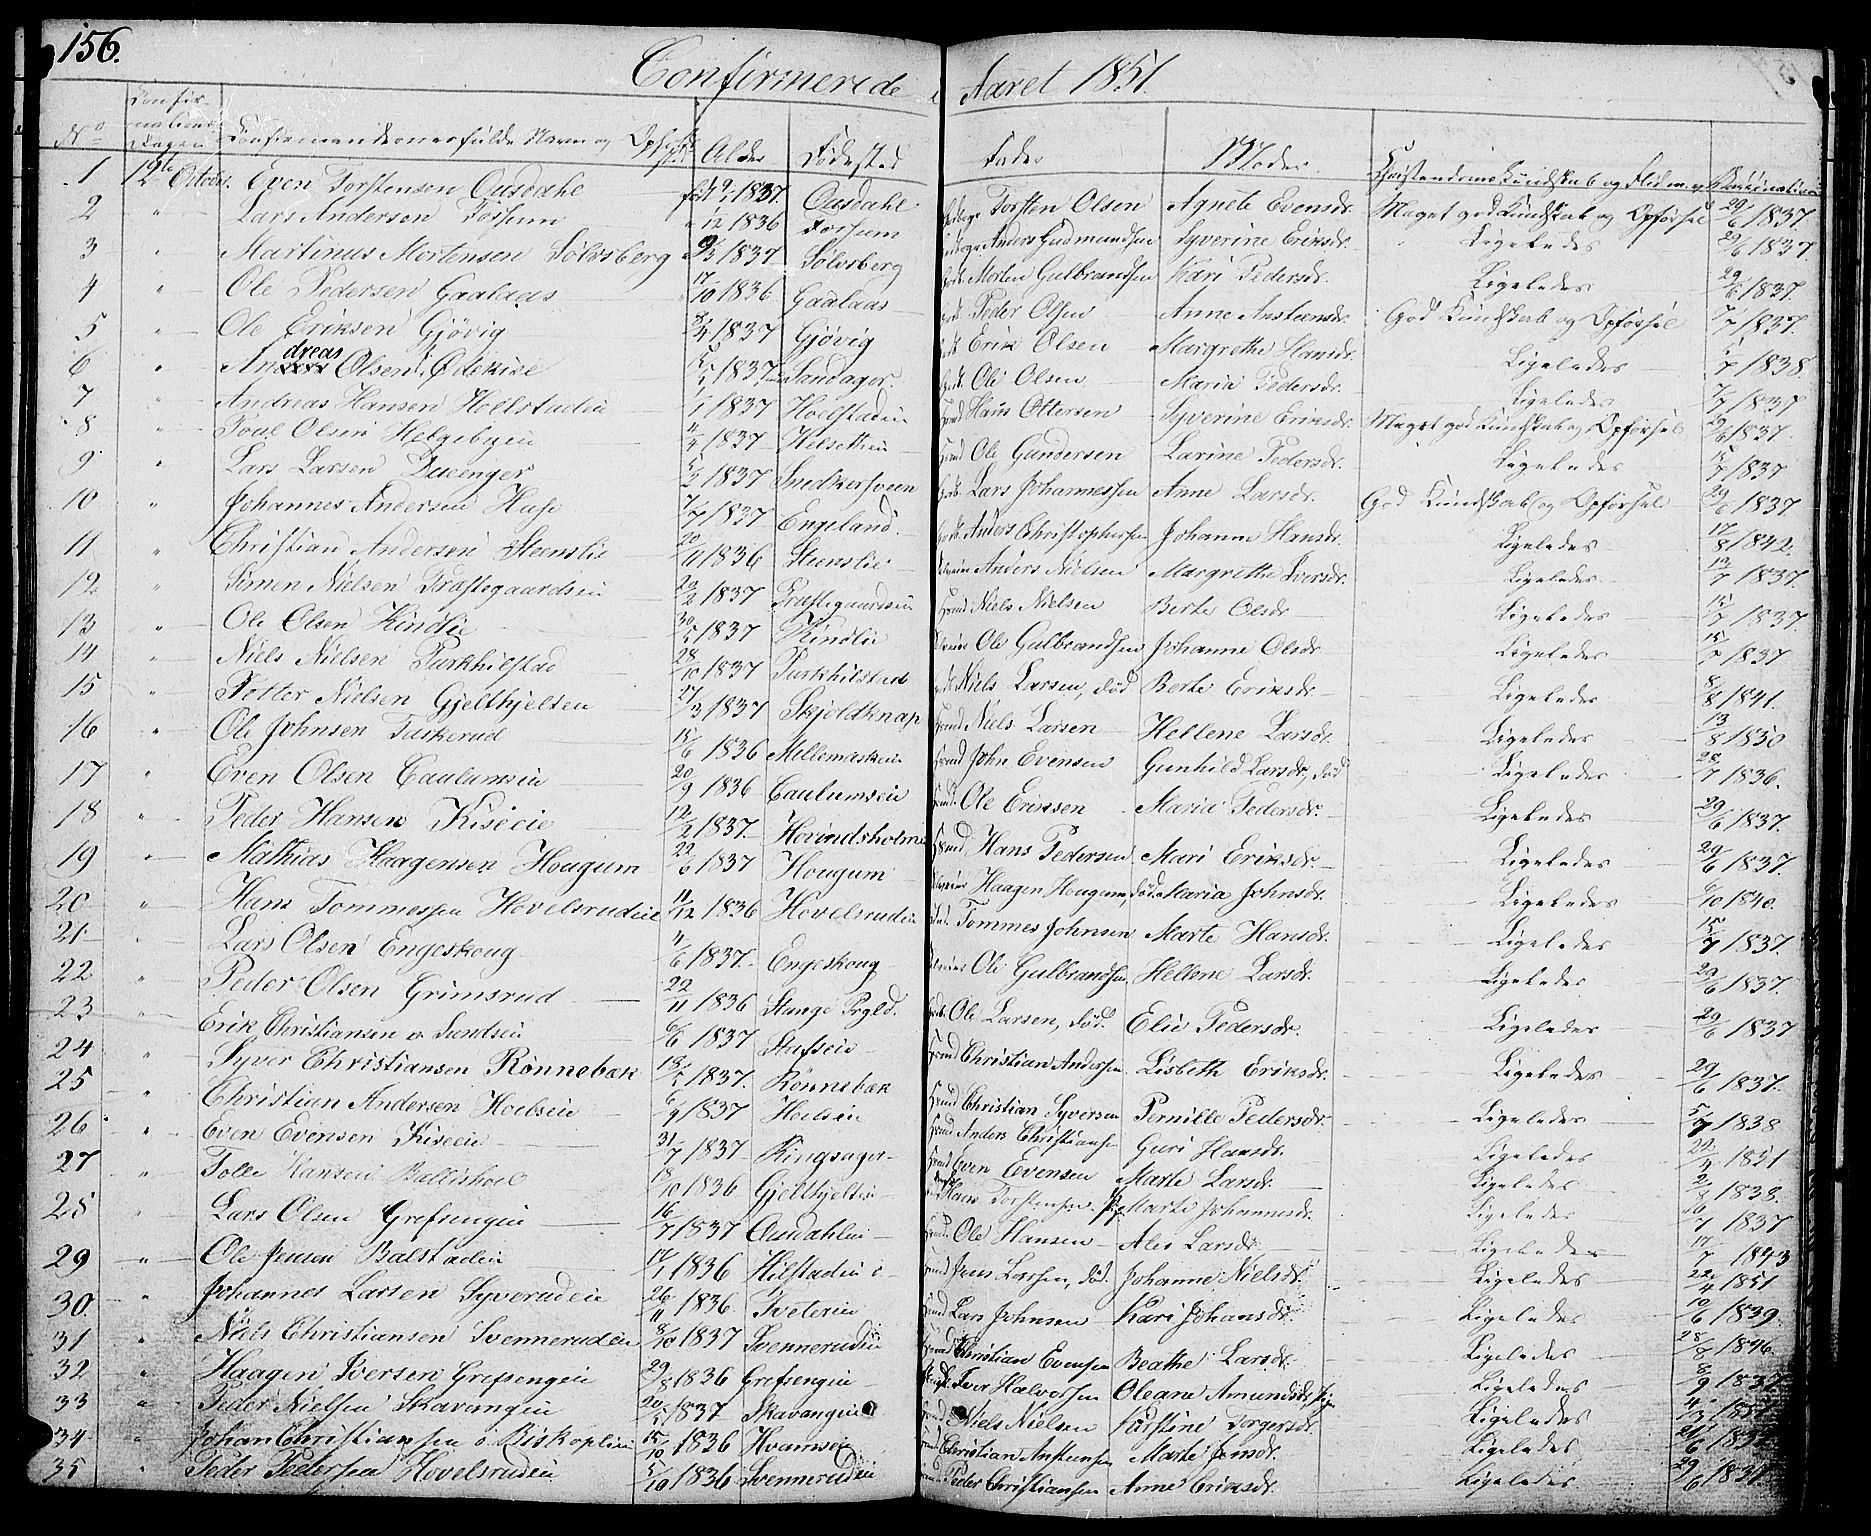 156.
Confirmerede i Aaret 1851.
No Confirmations Dagen Confirmandernes fulde Navn og Opholdssted Alder Fødested Fader Moder Christendoms Kundskab og Flid m. v. Vaccination
1 12te October Even Torstensen Ousdahl født 9/1 1837. Ousdahl Torsten Olsen Agnete Evensdr. Meget god Kundskab og Opførsel 29/6 1837.
2 " Lars Andersen Fossum /12 1836 Fossum Anders Gudmundsen Syverine Eriksdr. Ligeledes 29/6 1837.
3 " Martinus Mortensen Sølvsberg 9/3 1837 Sølvsberg Morten Gulbrandsen Kari Pedersdr. Ligeledes 29/6 1837.
4 " Ole Pedersen Gaalaas 17/10 1836 Gaalaas Peder Olsen Anne Anstensdr. God Kundskab og Opførsel 7/7 1837.
5 " Ole Eriksen Gjövig 8/4 1837 Gjövig Erik Olsen Margrethe Hansdr. Ligeledes /7 1838.
6 " Andreas Olsen Ødekive 5/5 1837 Sandager. Ole Olsen Maria Pedersdr. Ligeledes 7/7 1837
7 " Andreas Hansen Hollstadeie 1/1 1837 Hoelstadeie Hans Ottersen Syverine Eriksdr. Meget god Kundskab og Opførsel 29/6 1837.
8 " Poul Olsen Helgebyeie 4/4 1837 Helsetheie Ole Gundersen Larine Pedersdr. Ligeledes 15/7 1837
9 " Lars Larsen Dueenger 5/2 1837 Snedkersveen Lars Johannessen Anne Larsdr. God Kundskab og Opførsel 29/6 1837
10 " Johannes Andersen Huse 7/7 1837 Engeland. Anders Christophersen Johanne Hansdr. Ligeledes 17/8 1842.
11 " Christian Andersen Steenslie 20/11 1836 Steenslie Anders Nielsen Margrethe Iversdr. Ligeledes 13/7 1837.
12 " Simen Nielsen Præstegaardseie 22/2 1837 Præstegaardseie Niels Nielsen Berte Olsdr Ligeledes 15/7 1837.
13 " Ole Olsen Kindlie 30/5 1837 Kindlie Ole Gulbrandsen Johanne Olsdr Ligeledes 15/7 1837
14 " Niels Nielsen Turkhilstad 28/10 1837 Turkhilstad Niels Larsen, død Berte Eriksdr Ligeledes 8/8 1841.
15 " Petter Nielsen Gjelthjelten 27/3 1837 Skjoldknap Niels Larsen Hellene Larsdr. Ligeledes 13/8 1850
16 " Ole Johnsen Tuskerud 15/6 1836 John Evensen Gunhild Larsdr, død Ligeledes 28/7 1836.
17 " Even Olsen Caulumseie 20/9 1836 Caulumseie Ole Eriksen Maria Pedersdr. Ligeledes 29/6 1837.
18 " Peder Hansen Kiseeie 12/2 1837. Hovindsholm Hans Pedersen Mari Eriksdr. Ligeledes 29/6 1837.
19 " Mathias Haagensen Hougum 22/6 1837 Hougum Haagen Hougum død. Maria Johnsdr. Ligeledes 6/10 1840.
20 " Hans Tommessen Hovelsrudeie 11/12 1836 Hovelsrudeie Tommes Johnsen Marte Hansdr. Ligeledes 15/7 1837.
21 " Lars Olsen Engeskoug 4/6 1837. Engeskoug Ole Gulbrandsen Hellene Larsdr. Ligeledes 29/6 1837.
22 " Peder Olsen Grimsrud 22/11 1836 Stange Prgld. Ole Larsen, død. Elie Pedersdr. Ligeledes 29/6 1837
23 " Erik Christiansen Sundseie 6/6 1837 Christian Andersen Lisbeth Eriksdr. Ligeledes 29/6 1837.
24 " Syver Christiansen Rönnebæk 13/5 1837. Rönnebæk Christian Syversen Pernille Pedersdr. Ligeledes 5/7 1838
25 " Christian Andersen Hoelseie 6/9 1837 Hoelseie Anders Christiansen Guri Hansdr. Ligeledes 22/4 1851
26 " Even Evensen Kiseeie 31/7 1837 Ringsager Even Evensen Marte Larsdr. Ligeledes 2/8 1838.
27 " Tolle Hansen Ballishoel 18/10 1836 Gjelthjelten Hans Torstensen Marte Johannesdr. Ligeledes 16/7 1837
28 " Lars Olsen Grefsengeie 16/7 1837 Ousdahleie Ole Hansen Alis Larsdr. Ligeledes 17/7 1843
29 " Ole Jensen Balstadeie 17/1 1836 Hilstadeie Jens Larsen, død. Johanne Nielsdr. Ligeledes 22/4 1851
30 " Johannes Larsen Syverudeie 26/11 1836 Tvetereie Lars Johnsen Kari Johansdr. Ligeledes 10/6 1839.
31 " Niels Christiansen Svennerudeie 8/10 1837 Svennerudeie Christian Evensen Beathe Larsdr. Ligeledes 28/8 1846
32 " Haagen Iversen Grefsengeie 29/8 1836 Grefsengeie Iver Halvorsen Oleane Amundsdr. Ligeledes 8/9 1837
33 " Peder Nielsen Skavangeie 20/5 1837 Skavangeie Niels Nielsen Kirstine Torgersdr. Ligeledes
34 " Johan Christiansen Biskoplien 15/10 1836 Hvamseie Christian Anstensen Marte Jensdr. Ligeledes
35 " Peder Pedersen Hovelsrudeie 5/10 1836 Svennerudeie Peder Christiansen Anne Eriksdr. Ligeledes 29/6 1837.